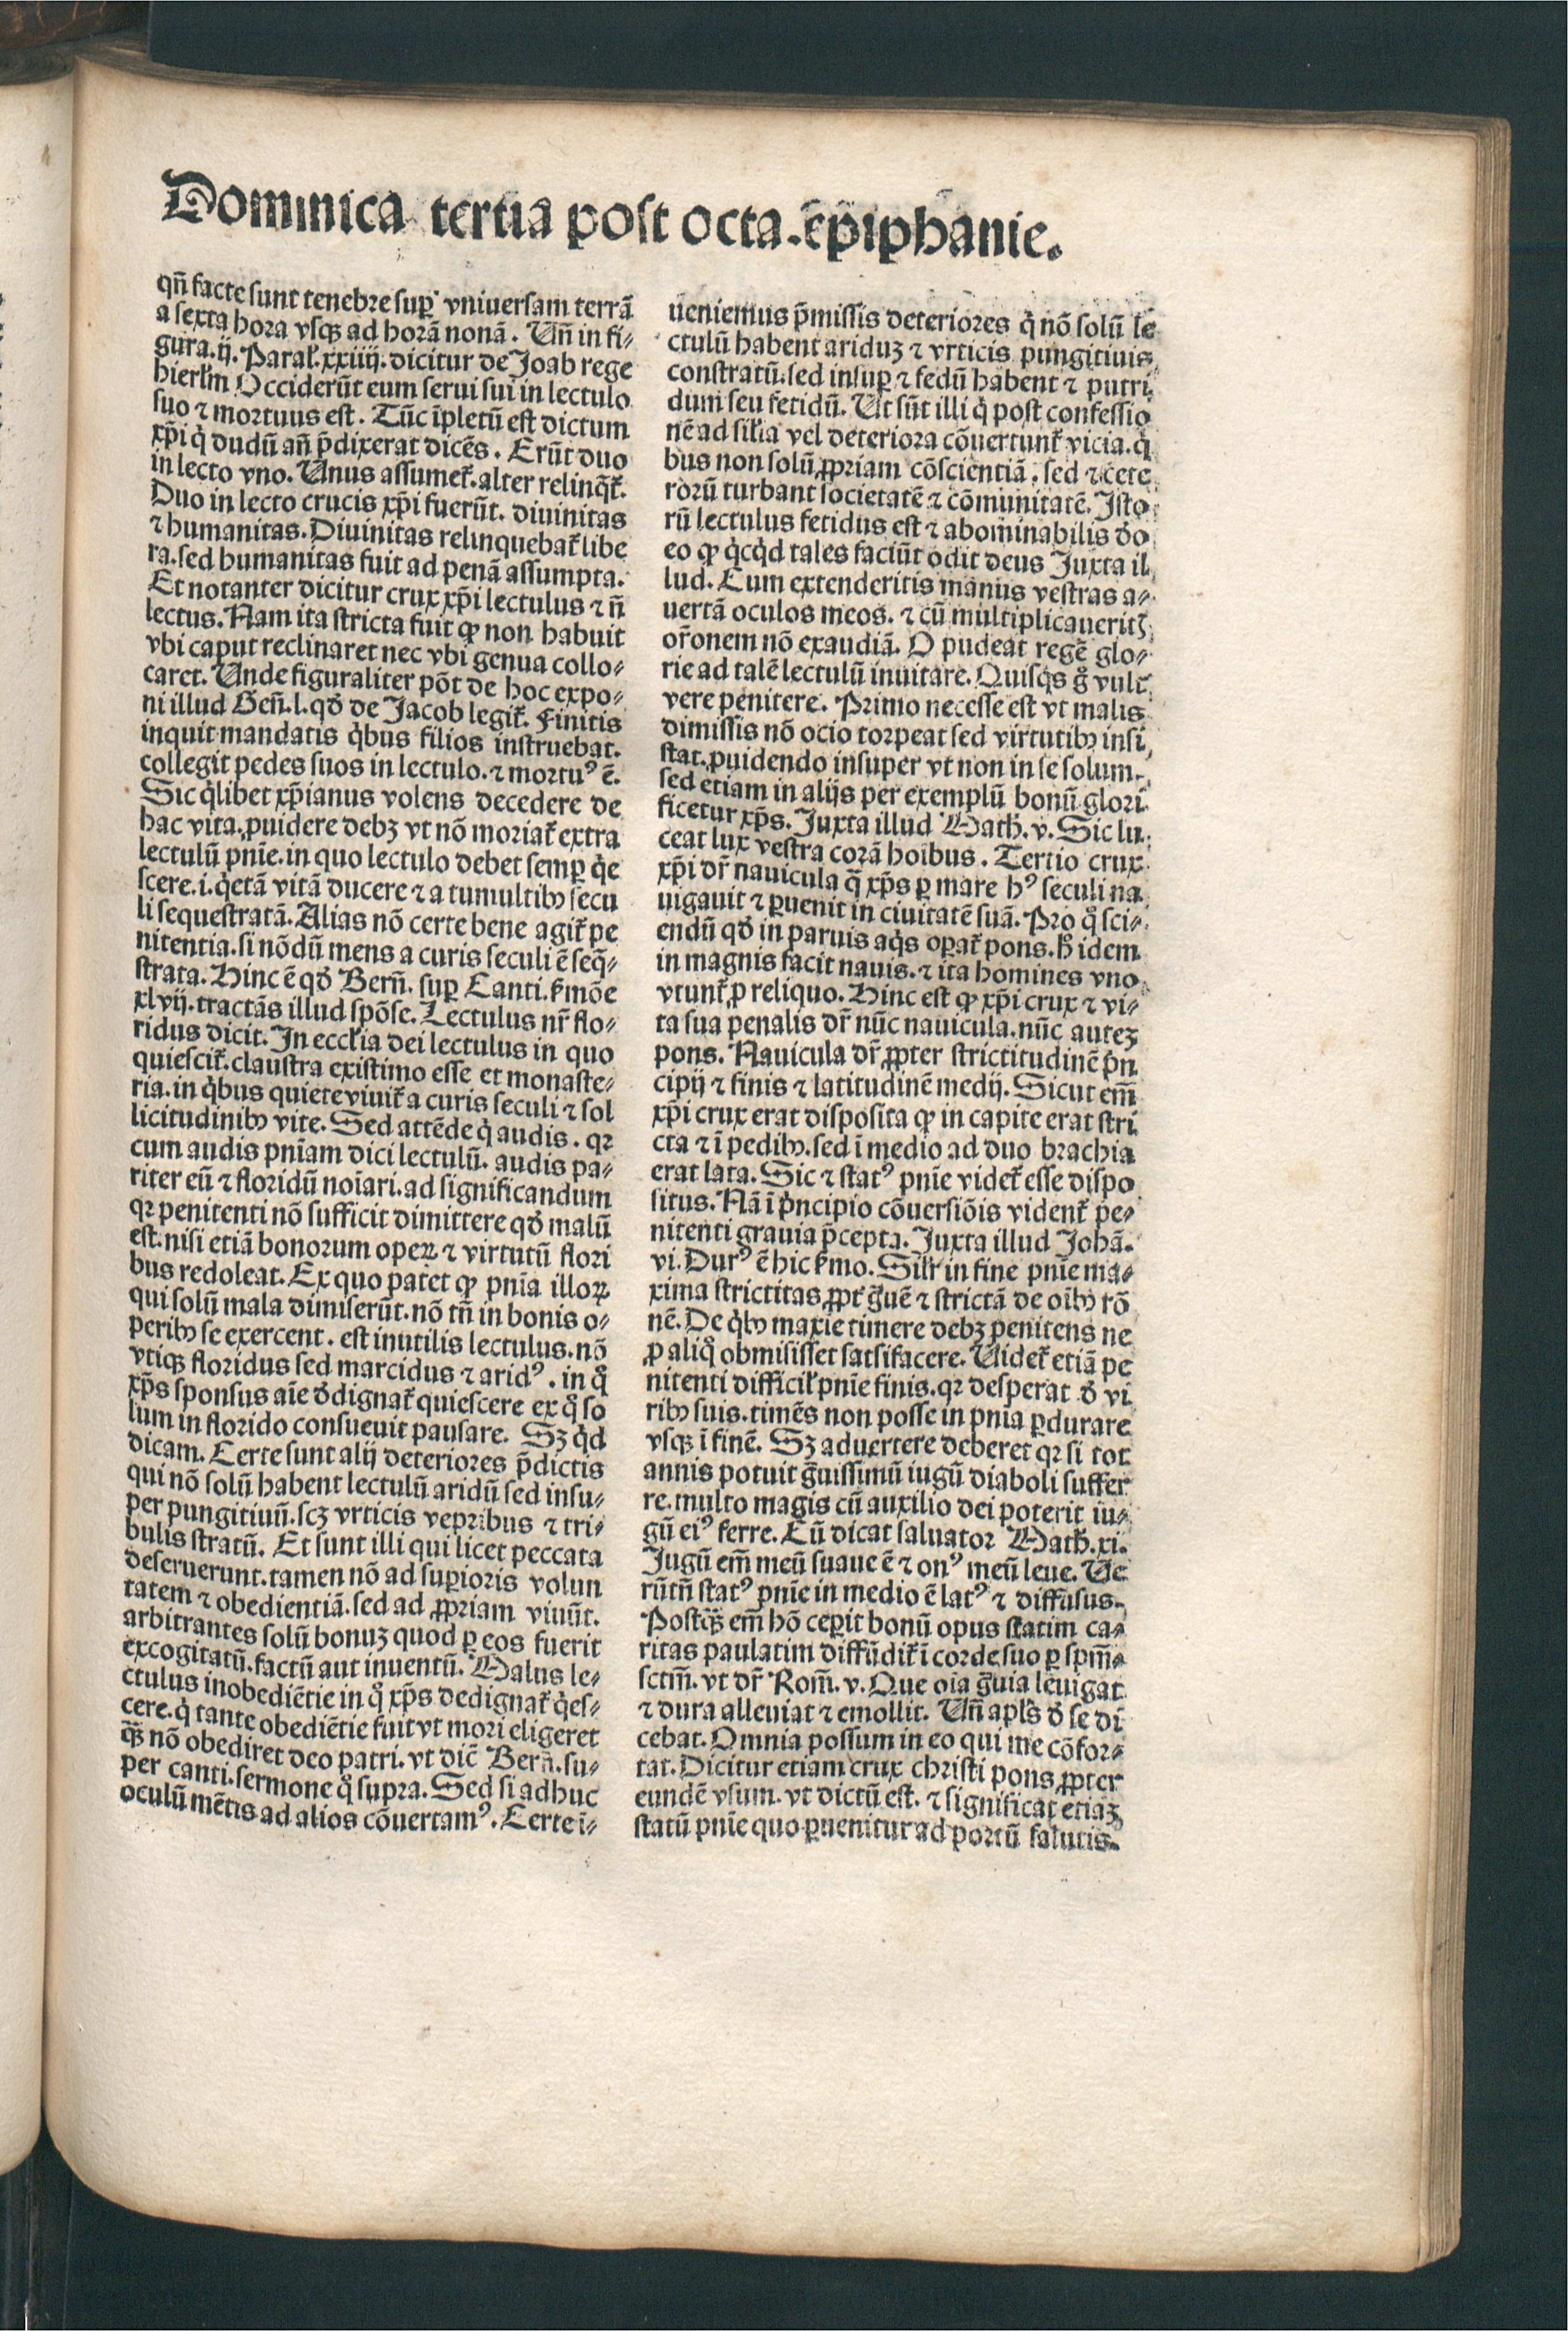 Dominica tertia post octa. ēpiphanie.
qñ facte sunt tenebre suꝑ vniuersam terrā
a sexta hora vsqꝫ ad horā nonā. Vñ in fi⸗
gura .ij. Paral̓. xxiiij. dicitur de Joab rege
hierl̓m Occiderūt eum serui sui in lectulo
suo ⁊ mortuus est. Tūc īpletū est dictum
xp̄i q̇ dudū añ p̄dixerat dicēs. Erūt duo
in lecto vno. Vnus assumet̉. alter relinq̄t̉.
Duo in lecto crucis xp̄i fuerūt. diuinitas
⁊ humanitas. Diuinitas relinquebat̉ libe
ra. sed humanitas fuit ad penā assumpta.
Et notanter dicitur crux xp̄i lectulus ⁊ ñ
lectus. Nam ita stricta fuit ꝙ non habuit
vbi caput reclinaret nec vbi genua collo⸗
caret. Vnde figuraliter pōt de hoc expo⸗
ni illud Geñ. l. qđ de Jacob legit̉. Finitis
inquit mandatis q̇bus filios instruebat.
collegit pedes suos in lectulo. ⁊ mortuꝰ ē.
Sic q̇libet xp̄ianus volens decedere de
hac vita. ꝓuidere debꝫ vt nō moriat̉ extra
lectulū pn̄ie. in quo lectulo debet semꝑ q̇e
scere .i. q̇etā vitā ducere ⁊ a tumultibꝰ secu
li sequestratā. Alias nō certe bene agit̉ pe
nitentia. si nōdū mens a curis seculi ē seq̄⸗
strata. Hinc ē qđ Berñ. suꝑ Canti. s̉mōe
xlvij. tractās illud spōse. Lectulus nr̄ flo⸗
ridus dicit. In eccl̓ia dei lectulus in quo
quiescit̉. claustra existimo esse et monaste⸗
ria. in q̇bus quiete viuit̉ a curis seculi ⁊ sol
licitudinibꝰ vite. Sed attēde q̇ audis. qꝛ
cum audis pn̄iam dici lectulū. audis pa⸗
riter eū ⁊ floridū noīari. ad significandum
qꝛ penitenti nō sufficit dimittere qđ malū
est. nisi etiā bonorum opeꝝ ⁊ virtutū flori
bus redoleat. Ex quo patet ꝙ pn̄ia illoꝝ
qui solū mala dimiserūt. nō tñ in bonis o⸗
peribꝰ se exercent. est inutilis lectulus. nō
vtiqꝫ floridus sed marcidus ⁊ aridꝰ. in q̊
xp̄s sponsus aīe đdignat̉ quiescere ex q̊ so
lum in florido consueuit pausare. Sꝫ q̇d
dicam. Certe sunt alij deteriores p̄dictis
qui nō solū habent lectulū aridū sed insu⸗
per pungitiuū. scꝫ vrticis vepribus ⁊ tri⸗
bulis stratū. Et sunt illi qui licet peccata
deseruerunt. tamen nō ad suꝑioris volun
tatem ⁊ obedientiā. sed ad ꝓpriam viuūt.
arbitrantes solū bonuꝫ quod ꝑ eos fuerit
excogitatū. factū aut inuentū. Malus le⸗
ctulus inobediētie in q̊ xp̄s dedignat̉ q̇es⸗
cere. q̇ tante obediētie fuit vt mori eligeret
qꝫ̄ nō obediret deo patri. vt dic̄ Berñ. su⸗
per canti. sermone q̊ supra. Sed si adhuc
oculū mētis ad alios cōuertamꝰ. Certe ī⸗
ueniemus p̄missis deteriores q̇ nō solū le
ctulū habent ariduꝫ ⁊ vrticis pungitiuis
constratū. sed insuꝑ ⁊ fedū habent ⁊ putri
dum seu fetidū. Vt sūt illi q̇ post confessio
nē ad sil̓ia vel deteriora cōuertunt̉ vicia. q̇
bus non solū ꝓpriam cōscientiā. sed ⁊ cete
rorū turbant societatē ⁊ cōmunitatē. Isto
rū lectulus fetidus est ⁊ abominabilis đo
eo ꝙ q̇cq̇d tales faciūt odit deus Juxta il
lud. Cum extenderitis manus vestras a⸗
uertā oculos meos. ⁊ cū multiplicaueritꝭ
or̄onem nō exaudiā. O pudeat regē glo⸗
rie ad talē lectulū inuitare. Quisq̇s g̊ vult
vere penitere. Primo necesse est vt malis
dimissis nō ocio torpeat sed virtutibꝰ insi
stat. ꝓuidendo insuper vt non in se solum.
sed etiam in alijs per exemplū bonū glori
ficetur xp̄s. Juxta illud Math̓. v. Sic lu
ceat lux vestra corā hoībus. Tertio crux
xp̄i dr̄ nauicula q̄ xp̄s ꝑ mare hꝰ seculi na
uigauit ⁊ ꝑuenit in ciuitatē suā. Pro q̊ sci⸗
endū qđ in paruis aq̇s oꝑat̉ pons. h̊ idem
in magnis facit nauis. ⁊ ita homines vno
vtunt̉ ꝓ reliquo. Hinc est ꝙ xp̄i crux ⁊ vi⸗
ta sua penalis dr̄ nūc nauicula. nūc auteꝫ
pons. Nauicula dr̄ ꝓpter strictitudinē p̓n
cipij ⁊ finis ⁊ latitudinē medij. Sicut em̄
xp̄i crux erat disposita ꝙ in capite erat stri
cta ⁊ ī pedibꝰ. sed ī medio ad duo brachia
erat lata. Sic ⁊ statꝰ pn̄ie videt̉ esse dispo
situs. Nā ī p̓ncipio cōuersiōis vident̉ pe⸗
nitenti grauia p̄cepta. Juxta illud Johā.
vi. Durꝰ ē hic s̉mo. Sil̓r in fine pn̄ie ma⸗
xima strictitas ꝓpt̉ g̊uē ⁊ strictā de oībꝰ rō
nē. De q̇bꝰ maxie timere debꝫ penitens ne
ꝓ aliq̊ obmisisset satisfacere. Videt̉ etiā pe
nitenti difficil̓ pn̄ie finis. qꝛ desperat đ vi
ribꝰ suis. timēs non posse in pn̄ia ꝑdurare
vsqꝫ ī finē. Sꝫ aduertere deberet qꝛ si tot
annis potuit g̊uissimū iugū diaboli suffer
re. multo magis cū auxilio dei poterit iu⸗
gū eiꝰ ferre. Cū dicat saluator Math̓. xi.
Jugū em̄ meū suaue ē ⁊ onꝰ meū leue. Ve
rūtñ statꝰ pn̄ie in medio ē latꝰ ⁊ diffusus.
Postqꝫ̄ em̄ hō ceperit bonū opus statim ca⸗
ritas paulatim diffūdit̉ ī corde suo ꝑ spm̄⸗
sctm̄. vt dr̄ Rom̄. v. Que oīa g̊uia leuigat
⁊ dura alleuiat ⁊ emollit. Vñ apl̓s đ se di
cebat. Omnia possum in eo qui me cōfor⸗
tat. Dicitur etiam crux christi pons ꝓpter
eundē vsum. vt dictū est. ⁊ significat etiaꝫ
statū pn̄ie quo ꝑuenitur ad portū salutis.